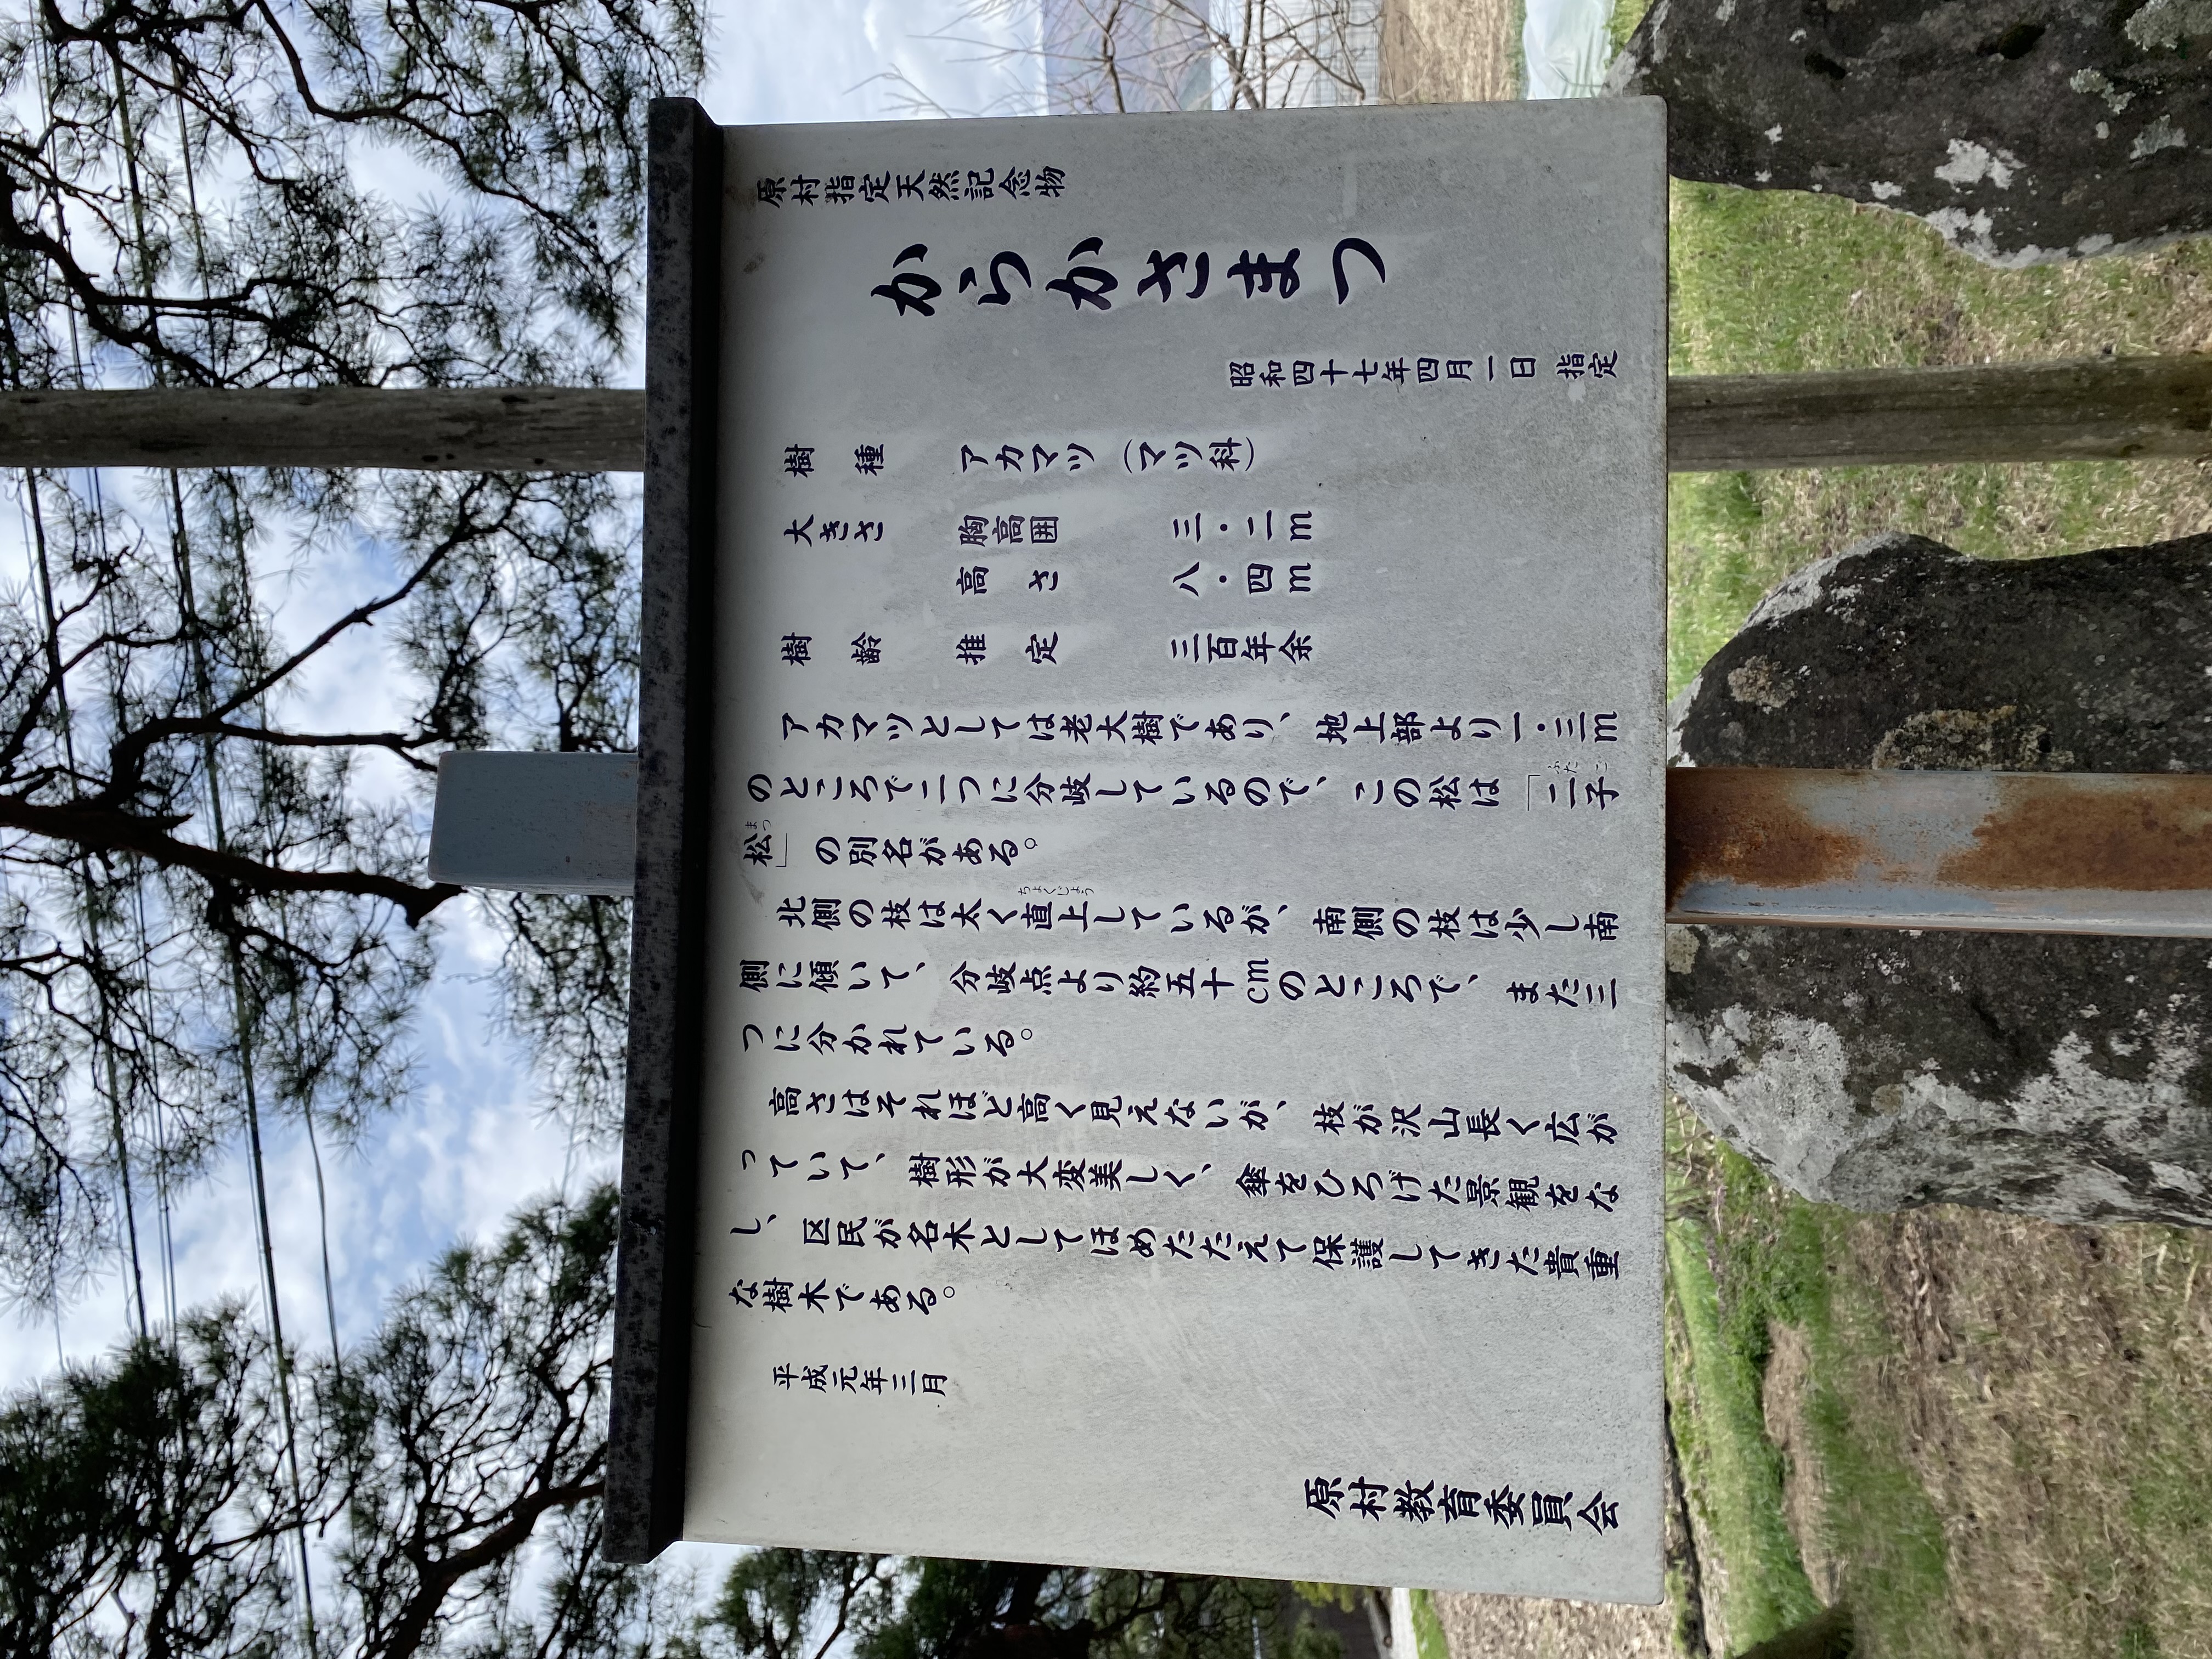 原村指定天然記念物
からかさまつ
昭和四十七年四月一日 指定
樹種 アカマツ(マツ科)
大きさ 胸高囲 三・二m
高さ 八・四m
樹齢 推定 三百年余
アカマツとしては老大樹であり、地上部より一・三m
のところで二つに分岐しているので、この松は「二子
ふたご
松」の別名がある。
まつ
北側の枝は太く直上しているが、南側の枝は少し南
ちよくじよう
側に傾いて、分岐点より約五十cmのところで、また三
つに分かれている。
高さはそれほど高く見えないが、枝が沢山長く広が
っていて、樹形が大変美しく、傘をひろげた景観をな
し、区民が名木としてほめたたえて保護してきた貴重
な樹木である。
平成元年三月
原村教育委員会